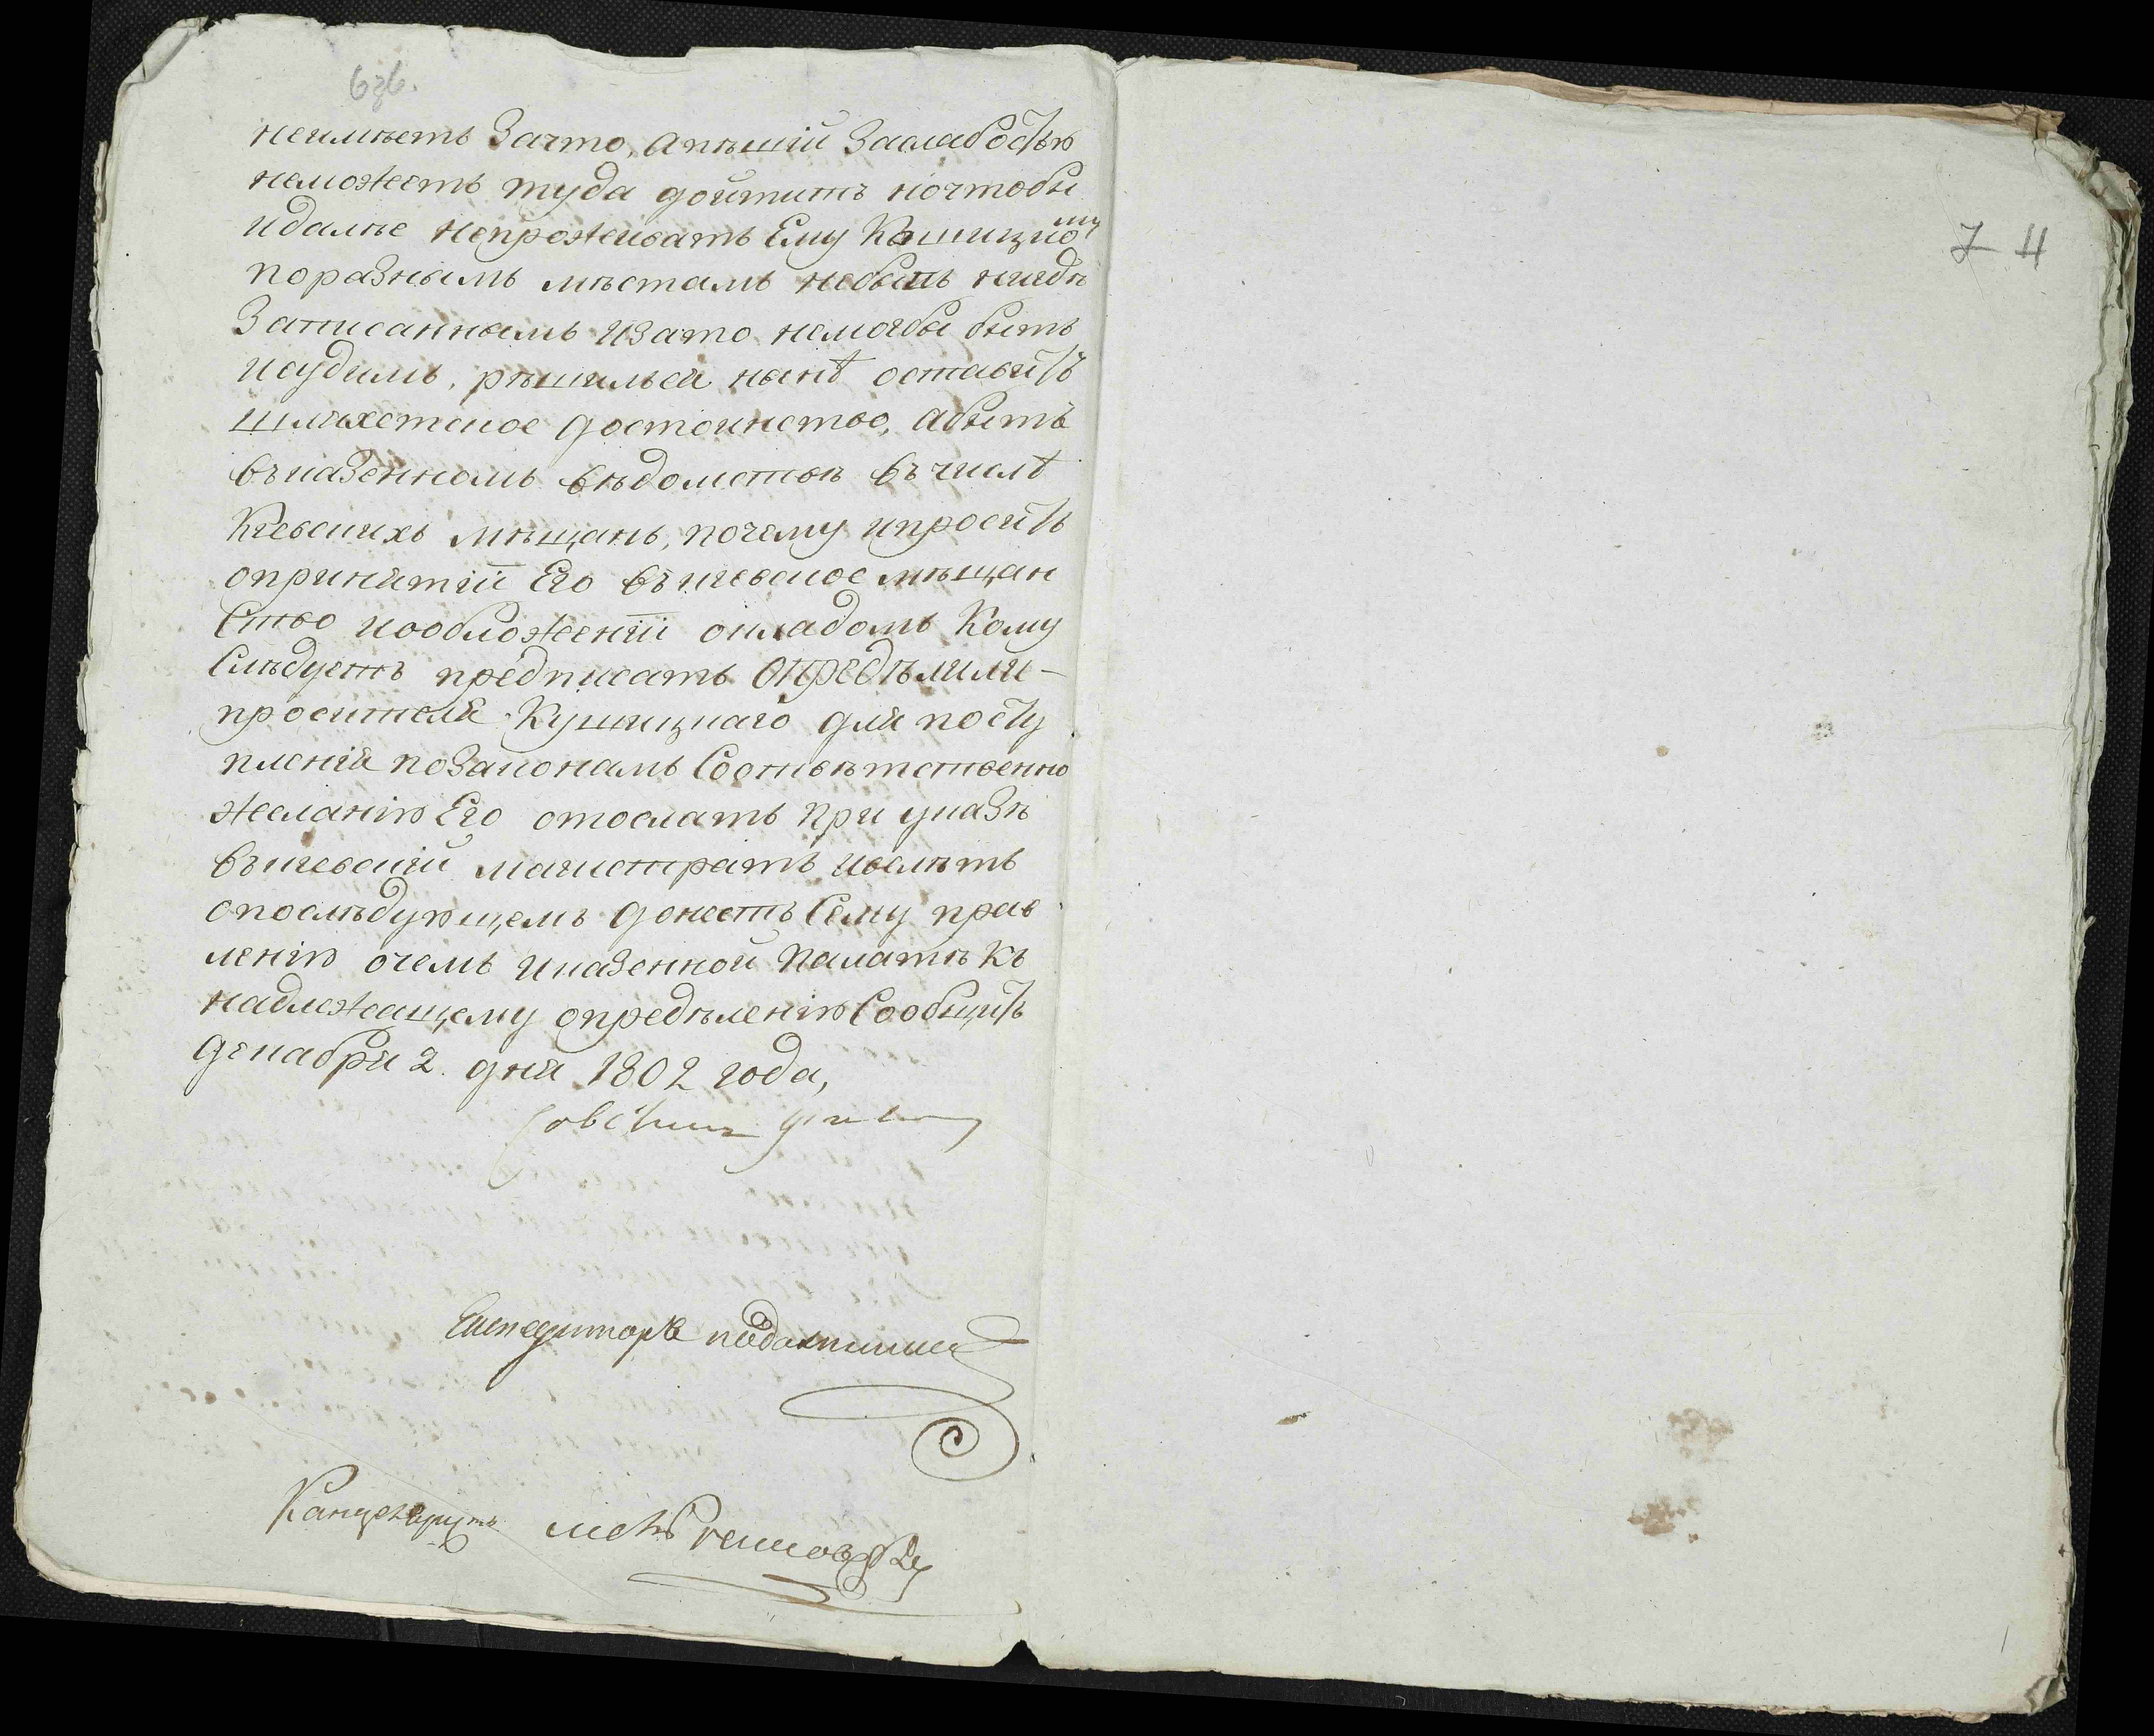 636.
неимѣетъ Зачто, апѣшій Заслабостью
неможетъ туда дойтить ночтобы
идалѣе непроживать Ему Кушицкому
поразнымъ мѣстамъ небывъ нигдѣ
Записаннымъ изато немогбы быть
судимъ, рѣшился нынѣ оставить
шляхетское достоинство, абыть
въказенномъ вѣдомствѣ въ числѣ
Кіевскихъ мѣщанъ, почему ипросить
опринятіи Его въкіевское мѣщан
Ство иообложеніи окладомъ Кому
Слѣдуетъ предписать Опредѣлили-
просителя Кушицкаго для посту
пленія поЗаконамъ Соотвѣтственно
желанію Его отослать при указѣ
въкіевскій магистратъ ивелѣть
опослѣдующемъ донесть Сему прав
ленію очемъ иказенной палатѣ къ
надлежащему опредѣленію Сообщить
декабря 2 дня 1802 года,
Советник
Експедиторъ
Канцеляристъ
7 4